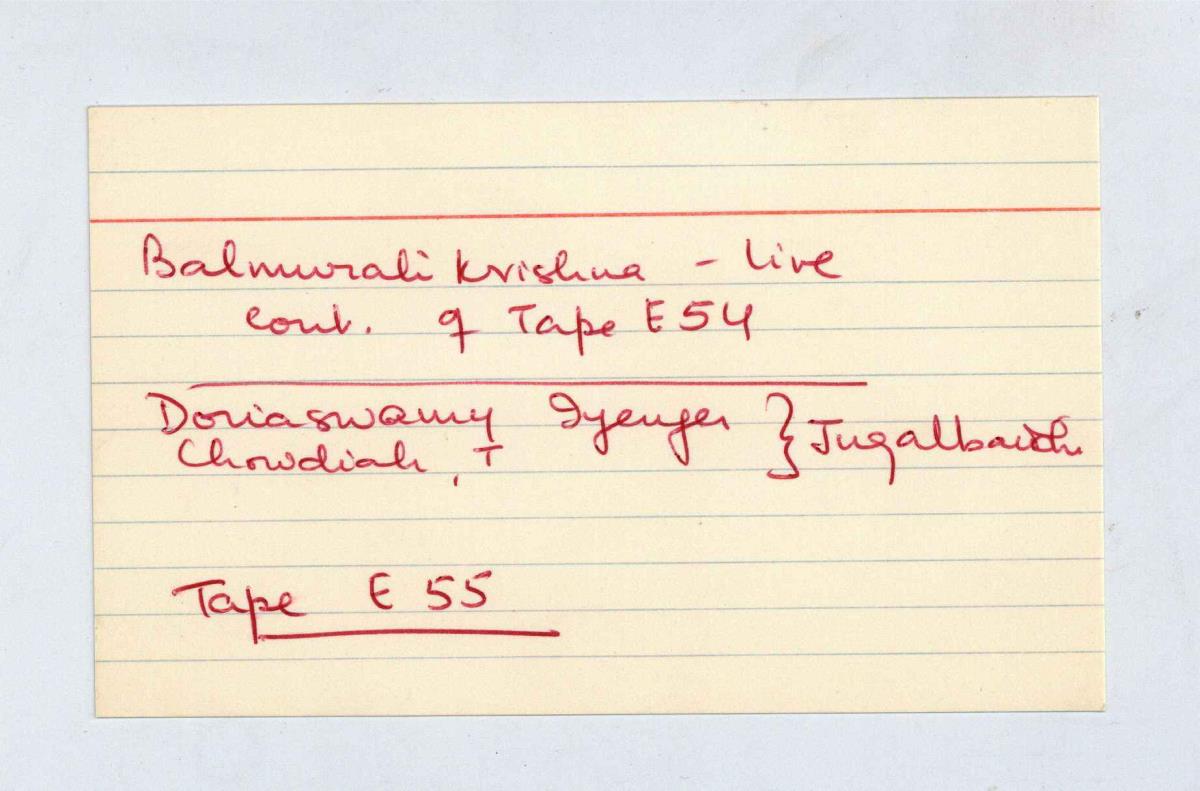 Balmurali Krishna - live
cont. of Tape E 54
Doriaswamy Iyenger } Jugalbandi
Chowdiah, T
Tape E 55